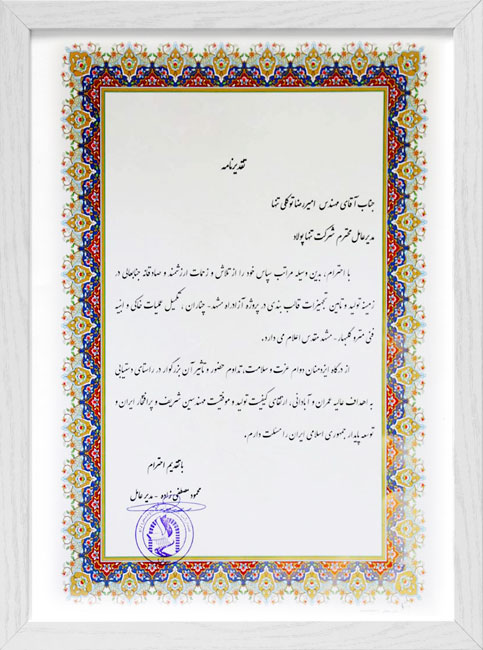 تقدیرنامه
جناب آقای مهندس امیررضا توکلی تنها
مدیرعامل محترم شرکت تنها پولاد
با احترام، بدین وسیله مراتب سپاس خود را از تلاش و زحمات ارزشمند و صادقانه جنابعالی در
زمینه تولید و تامین تجهیزات قالب بندی در پروژه آزادراه مشهد- چناران، تکمیل عملیات خاکی و ابنیه
فنی مترو گلبهار- مشهد مقدس اعلام می دارد.
از درگاه ایزدمنان دوام عزت و سلامت، تداوم حضور و تأثیر آن بزرگوار در راستای دستیابی
به اهداف عالیه عمران و آبادانی، ارتقای کیفیت تولید و موفقیت مهندسین شریف و پرافتخار ایران و
توسعه پایدار جمهوری اسلامی ایران را مسئلت دارم.
با تقدیم احترام
محمود مصطفی نژاد - مدیرعامل